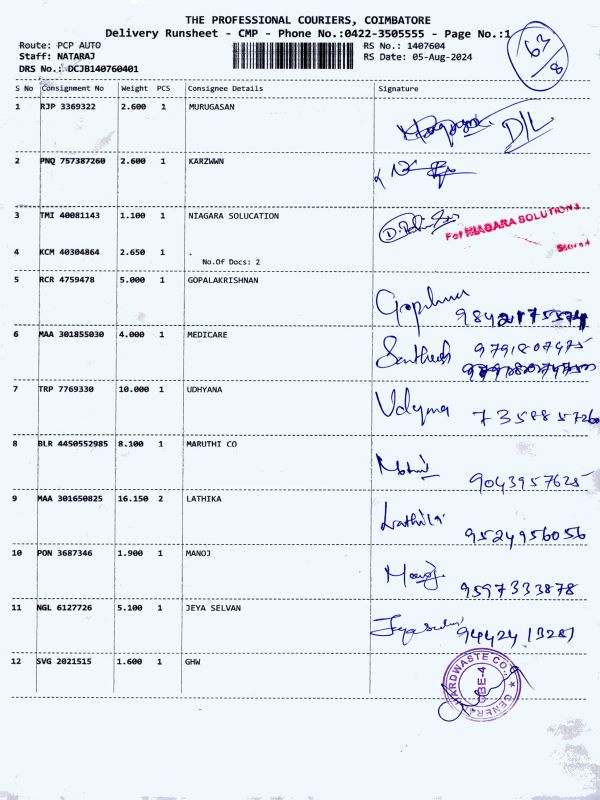 THE PROFESSIONAL COURIERS, COIMBATORE
Delivery Runsheet - CMP - Phone No.:0422-3505555 - Page No.:1
63/8
Route: PCP AUTO RS No.: 1407604
Staff: NATARAJ RS Date: 05-Aug-2024
DRS No.: DCJB140760401
S No Consignment No Weight PCS Consignee Details Signature
1 RJP 3369322 2.600 1 MURUGASAN
D/L
2 PNQ 757387260 2.600 1 KARZWWN
3 TMI 40081143 1.100 1 NIAGARA SOLUCATION
For NIAGARA SOLUTIONS
4 KCM 40304864 2.650 1 .
No.Of Docs: 2
5 RCR 4759478 5.000 1 GOPALAKRISHNAN
6 MAA 301855030 4.000 1 MEDICARE
Santhosh 9791807475
7 TRP 7769330 10.000 1 UDHYANA
Udyma 7358857260
8 BLR 4450552985 8.100 1 MARUTHI CO
9043957625
9 MAA 301650825 16.150 2 LATHIKA
Lathika
9524956056
10 PON 3687346 1.900 1 MANOJ
Manoj 9597333878
11 NGL 6127726 5.100 1 JEYA SELVAN
Jeyaselvan 9442413287
12 SVG 2021515 1.600 1 GHW
GENERAL HARDWASTE CO. CBE-4